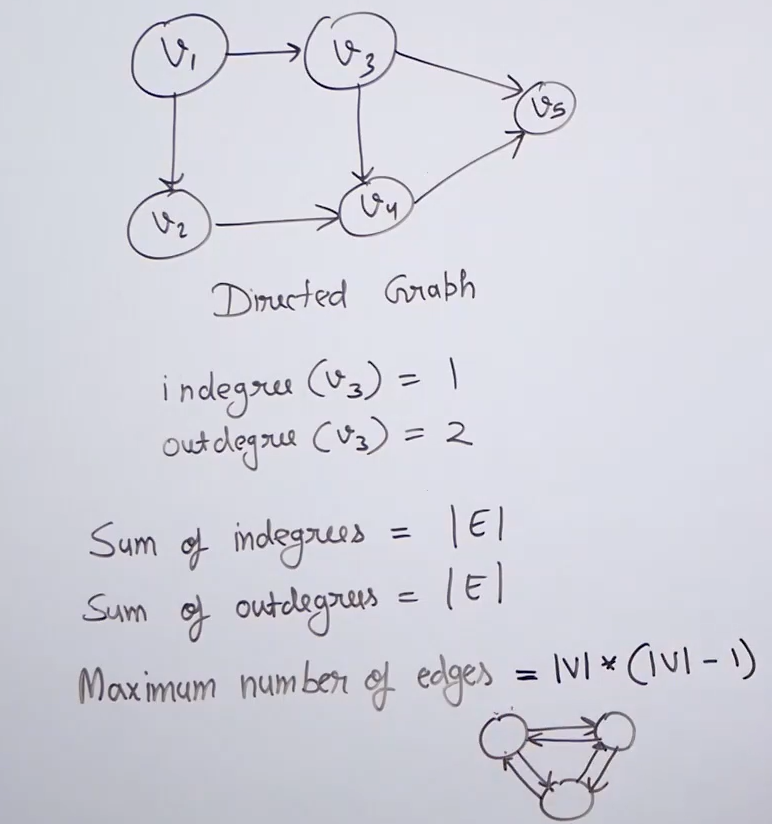 V₁
V₃
V₅
V₂
V₄
Directed Graph
indegree (V₃) = 1
outdegree (V₃) = 2
Sum of indegrees = |E|
Sum of outdegrees = |E|
Maximum number of edges = |V| * (|V| - 1)